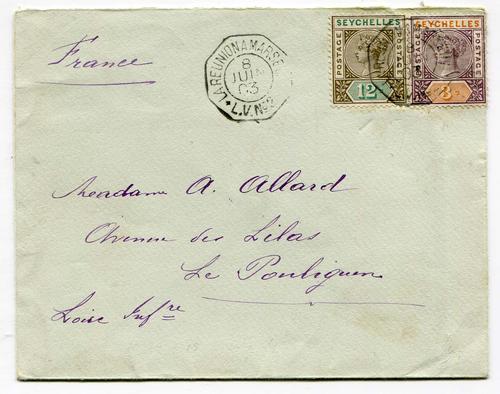 France
LA REUNION A MARSE
8
JUIN
03
L.V. Nº2
SEYCHELLES
POSTAGE
POSTAGE
12
SEYCHELLES
POSTAGE
POSTAGE
3
Madame A. Allard
Avenue des Lilas
Le Pouliguen
Loire Infre